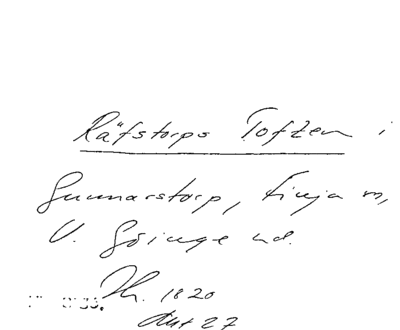 Räfstorps Tofzen i
Gunnarstorp, Finja sn,
V. Göinge hd.
Th. 1820
Akt 27